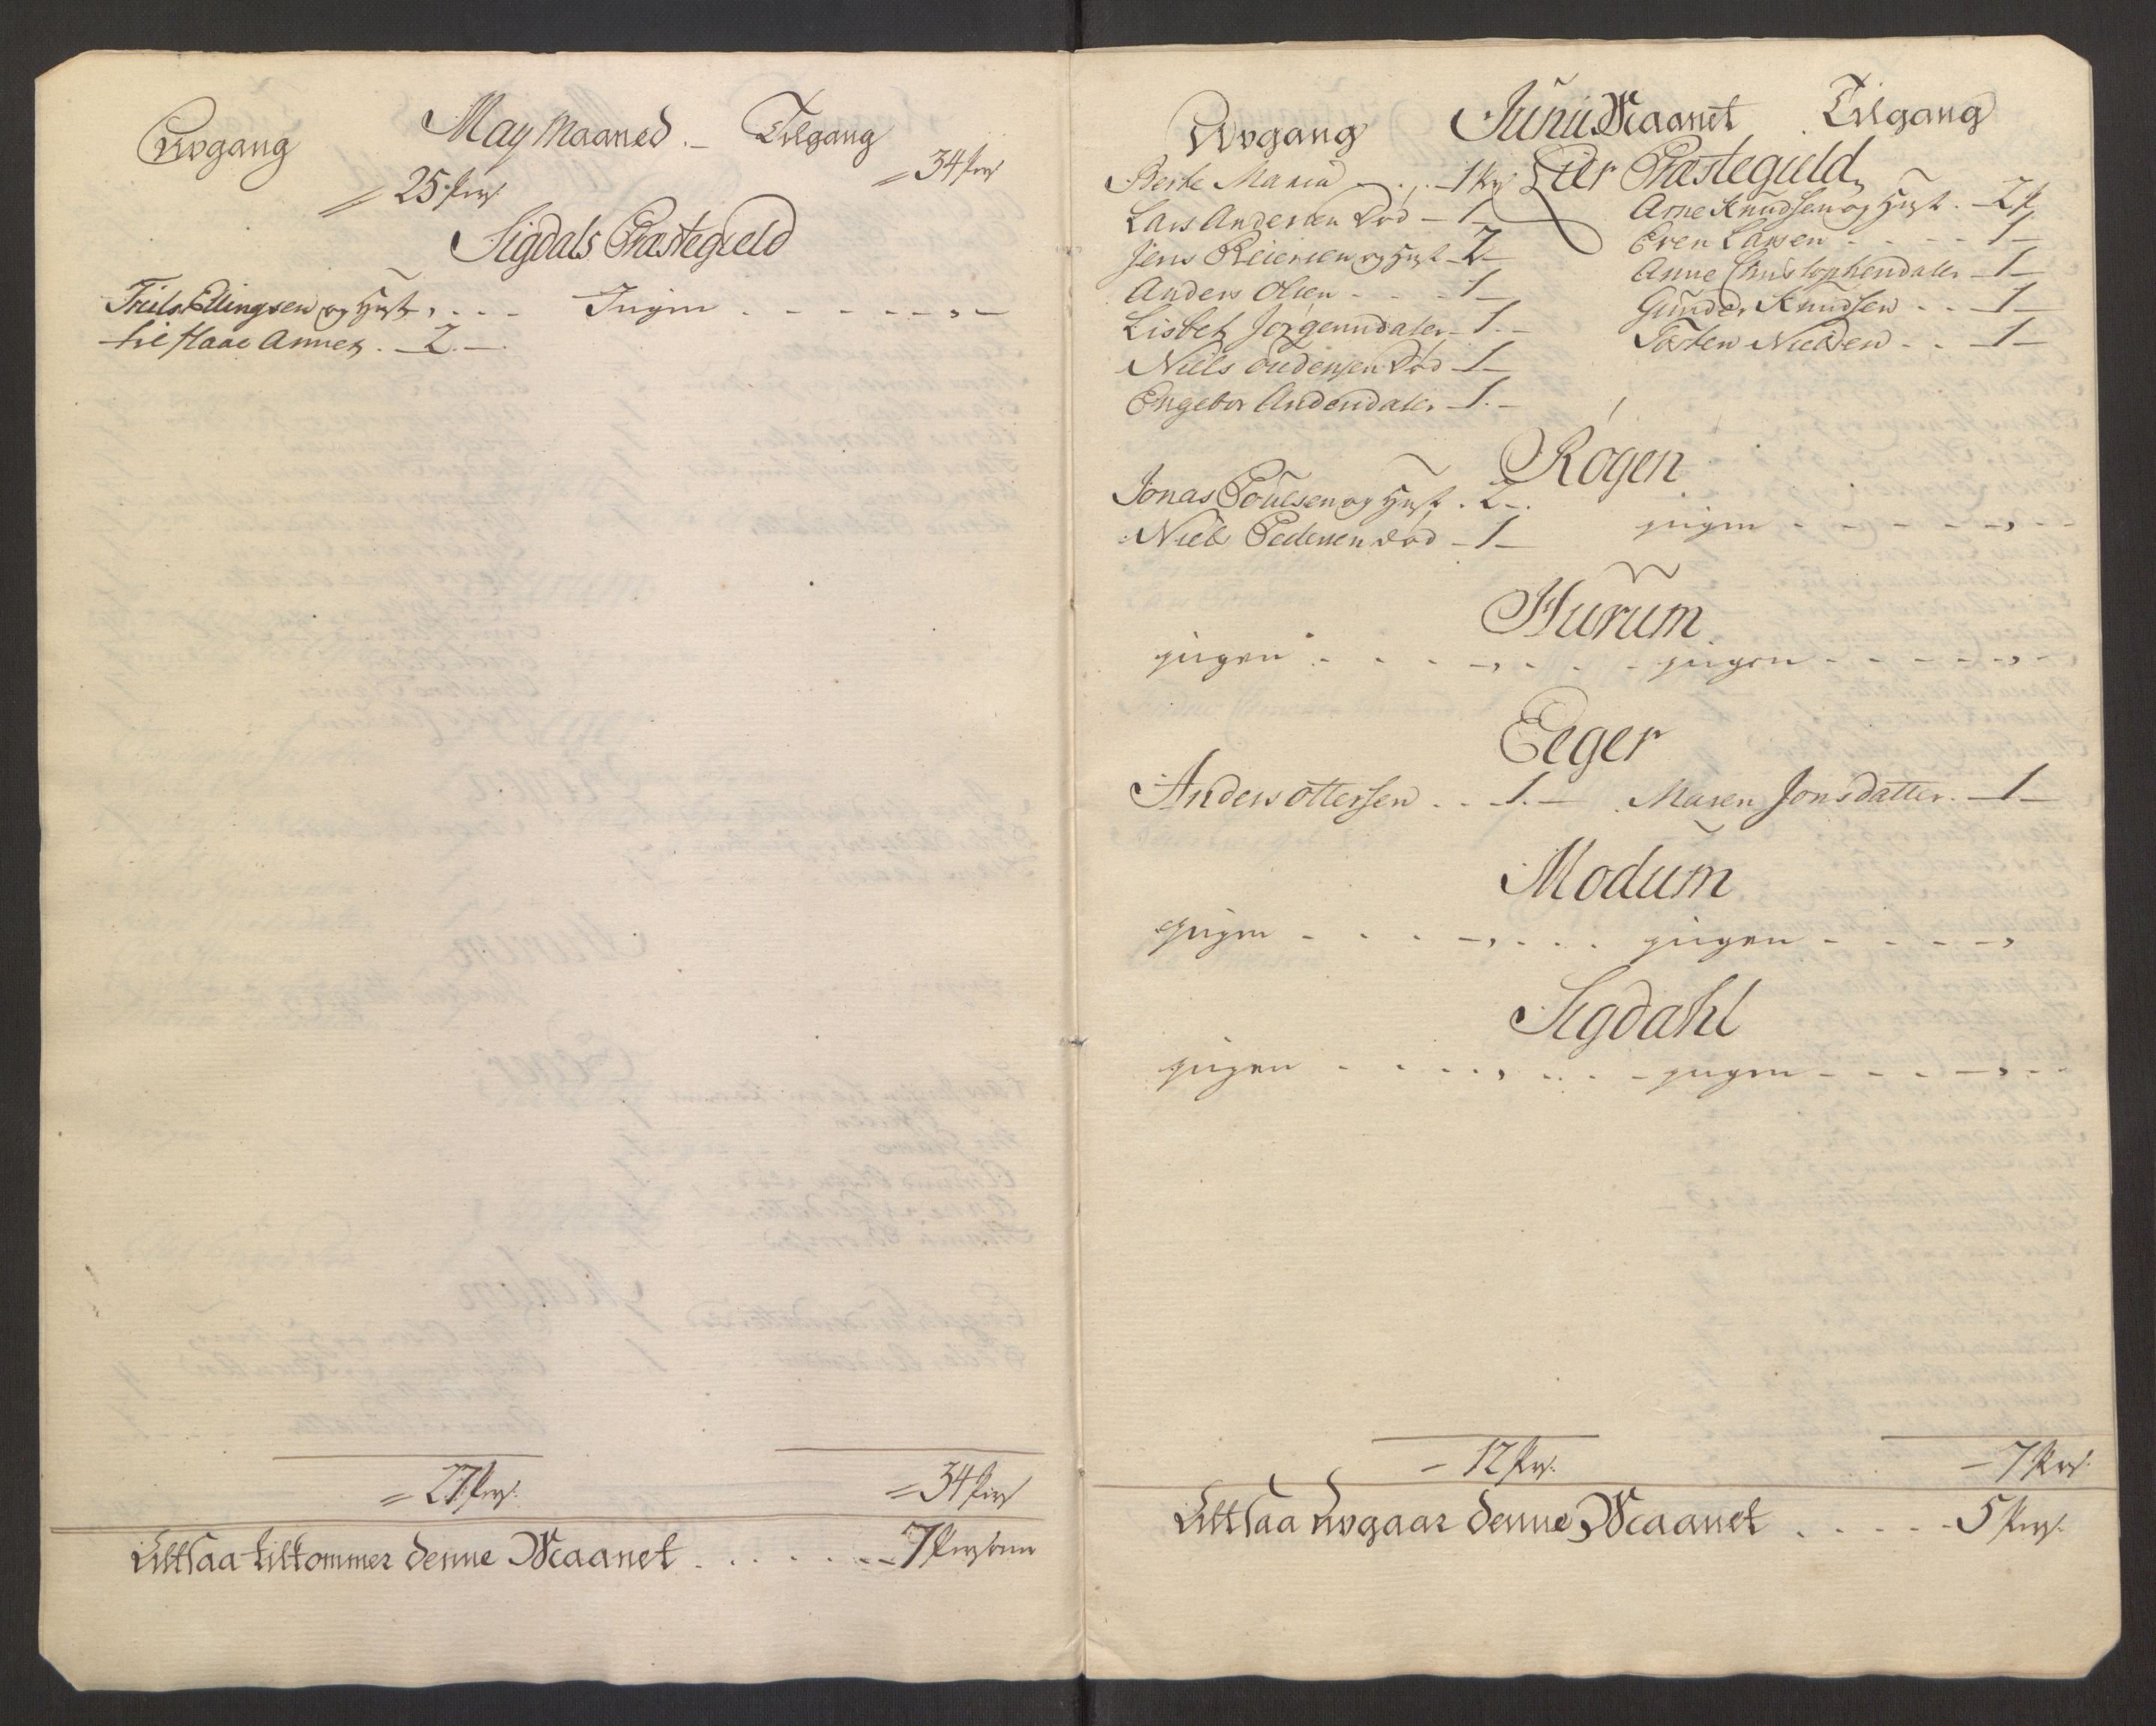 Avgang May Maaned. Tilgang
= 25 Pers
= 34 Pers
Sigdals Præstegield
Truls Ellingsen og Hust. - - - Ingen - - - - - - „ -
til Haae Annex. - 2. -
= 27 Pers.
= 34 Pers
Altsaa tilkommer denne Maanet . . . . . . . - 7 Personer
Avgang Junii Maanet Tilgang
Lier Præstegield
Berte Maria - . . . - 1 Prs
Lars Andersen Død - 1 -
Jens Reiersen og Hust - 2 -
Anders Olsen - - - 1 -
Lisbet Jørgensdater - 1. -
Niels Oudensen Død - 1 -
Engebor Andersdater - 1. -
Arne Knudsen og Hust. - 2 P
Even Larsen - - - - - 1 -
Anne Christophersdater - 1 -
Gunder Knudsen - - - 1 -
Tosten Nielsen - - - 1 -
Røgen
Jonas Poulsen og Hust . 2 -.
Niels Pedersen død - 1 -
ingen - - - - - - „ - -
Hurum
ingen - - - - „ - - - ingen - - - - - „ -
Eeger
Anders Ottersen . . - 1. - Maren Jonsdatter. - 1 -
Modum
ingen - - - - „ - . . ingen - - - - „
Sigdahl
ingen - - - - „ . . . - ingen - - - - „ - -
- 12 Prs.
- 7 Prs.
Altsaa Avgaar denne Maanet . . . . . - 5 Prs.